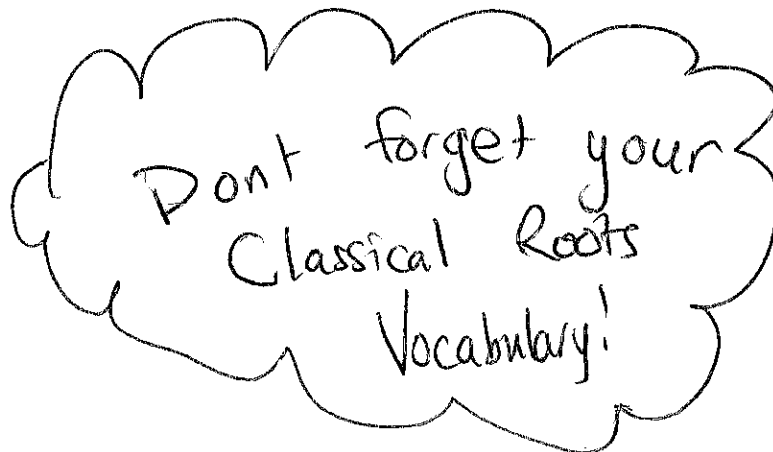 Dont forget your
Classical Roots
Vocabulary!